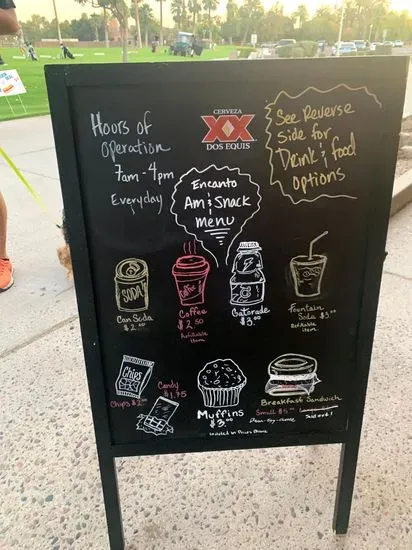 Hours of
operation
7am - 4pm
Everyday
CERVEZA
XX
DOS EQUIS
See Reverse
Side for
Drink & food
options
Encanto
Am & Snack
menu
SODA
Can Soda
$2.00
Coffee
Coffee
$2.50
Refillable
item
Gatorade
$3.00
Fountain
Soda $5.00
Refillable
item
Chips
Chips $2.00
Candy
$1.75
Muffins
$3.00
Breakfast Sandwich
Small $5.00
Sold out!